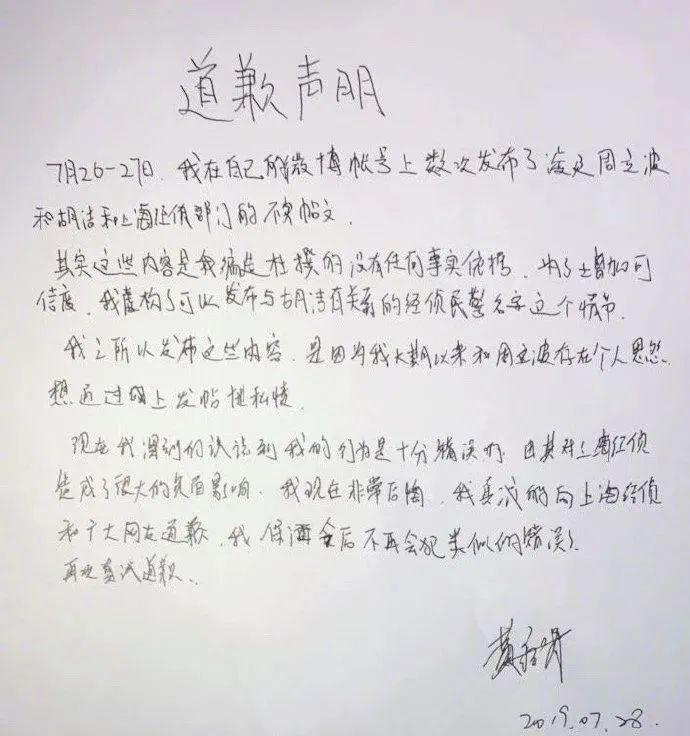 道歉声明
7月26-27日,我在自己的微博帐号上数次发布了涉及周立波
和胡洁和上海经侦部门的不实帖文.
其实这些内容是我编造杜撰的没有任何事实依据.为了增加可
信度,我虚构了可以发布与胡洁有关系的经侦民警名字这个情节.
我之所以发布这些内容,是因为我长期以来和周立波存在个人恩怨.
想通过网上发帖泄私愤.
现在我深刻的认识到我的行为是十分错误的.由其对上海经侦
造成了很大的负面影响.我现在非常后悔,我真诚的向上海经侦
和广大网友道歉,我保证今后不再会犯类似的错误.
再次真诚道歉.
2019.07.28.